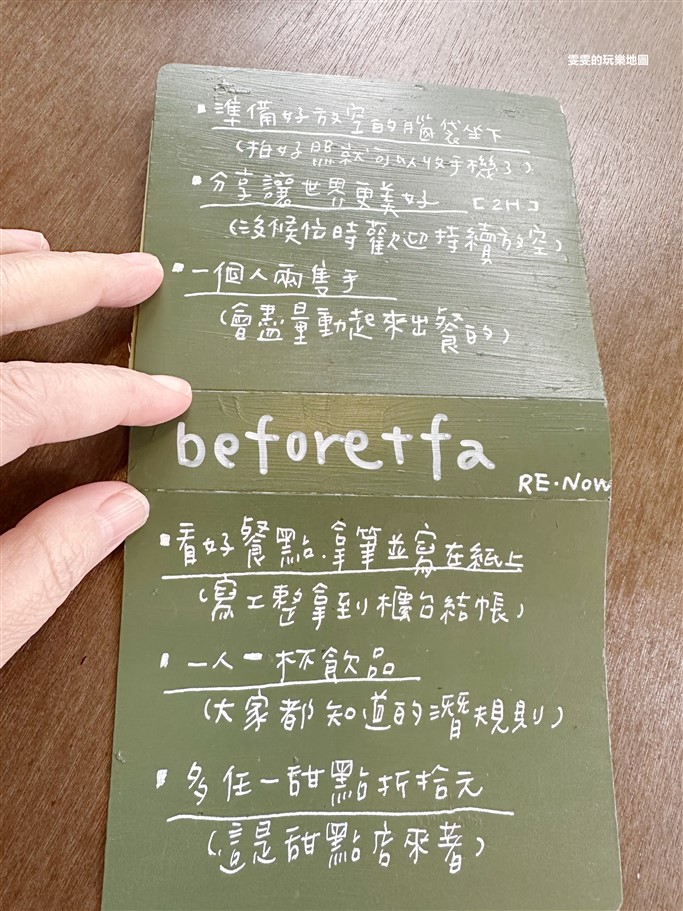 雯雯的玩樂地圖
準備好放空的腦袋坐下
(拍好照就可以收手機了)
分享讓世界更美好 [2H]
(沒候位時歡迎持續放空)
一個人兩隻手
(會盡量動起來出餐的)
beforetfa
RE·Now
看好餐點.拿筆並寫在紙上
(寫工整拿到櫃台結帳)
一人一杯飲品
(大家都知道的潛規則)
多任一甜點折拾元
(這是甜點店來著)